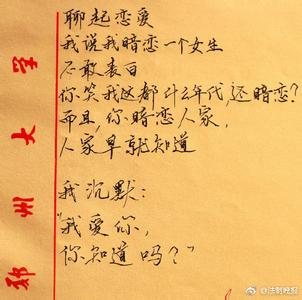 聊起恋爱
我说我暗恋一个女生
不敢表白
你笑我这都什么年代,还暗恋?
而且,你暗恋人家,
人家早就知道
我沉默:
"我爱你,
你知道吗?"
郑州大学
@法制晚报